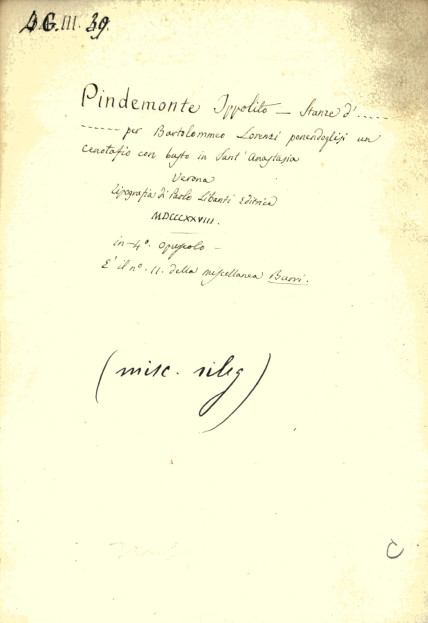 G.III. 39.
Pindemonte Ippolito — Stanze d' .....
------ per Bartolommeo Lorenzi ponendoglisi un
cenotafio con busto in Sant' Anastasia
Verona
Tipografia di Paolo Libanti Editrice
MDCCCXXVIII.
in-4°. opuscolo —
E' il n°. 11. della miscellanea Buori.
(misc. rileg)
C